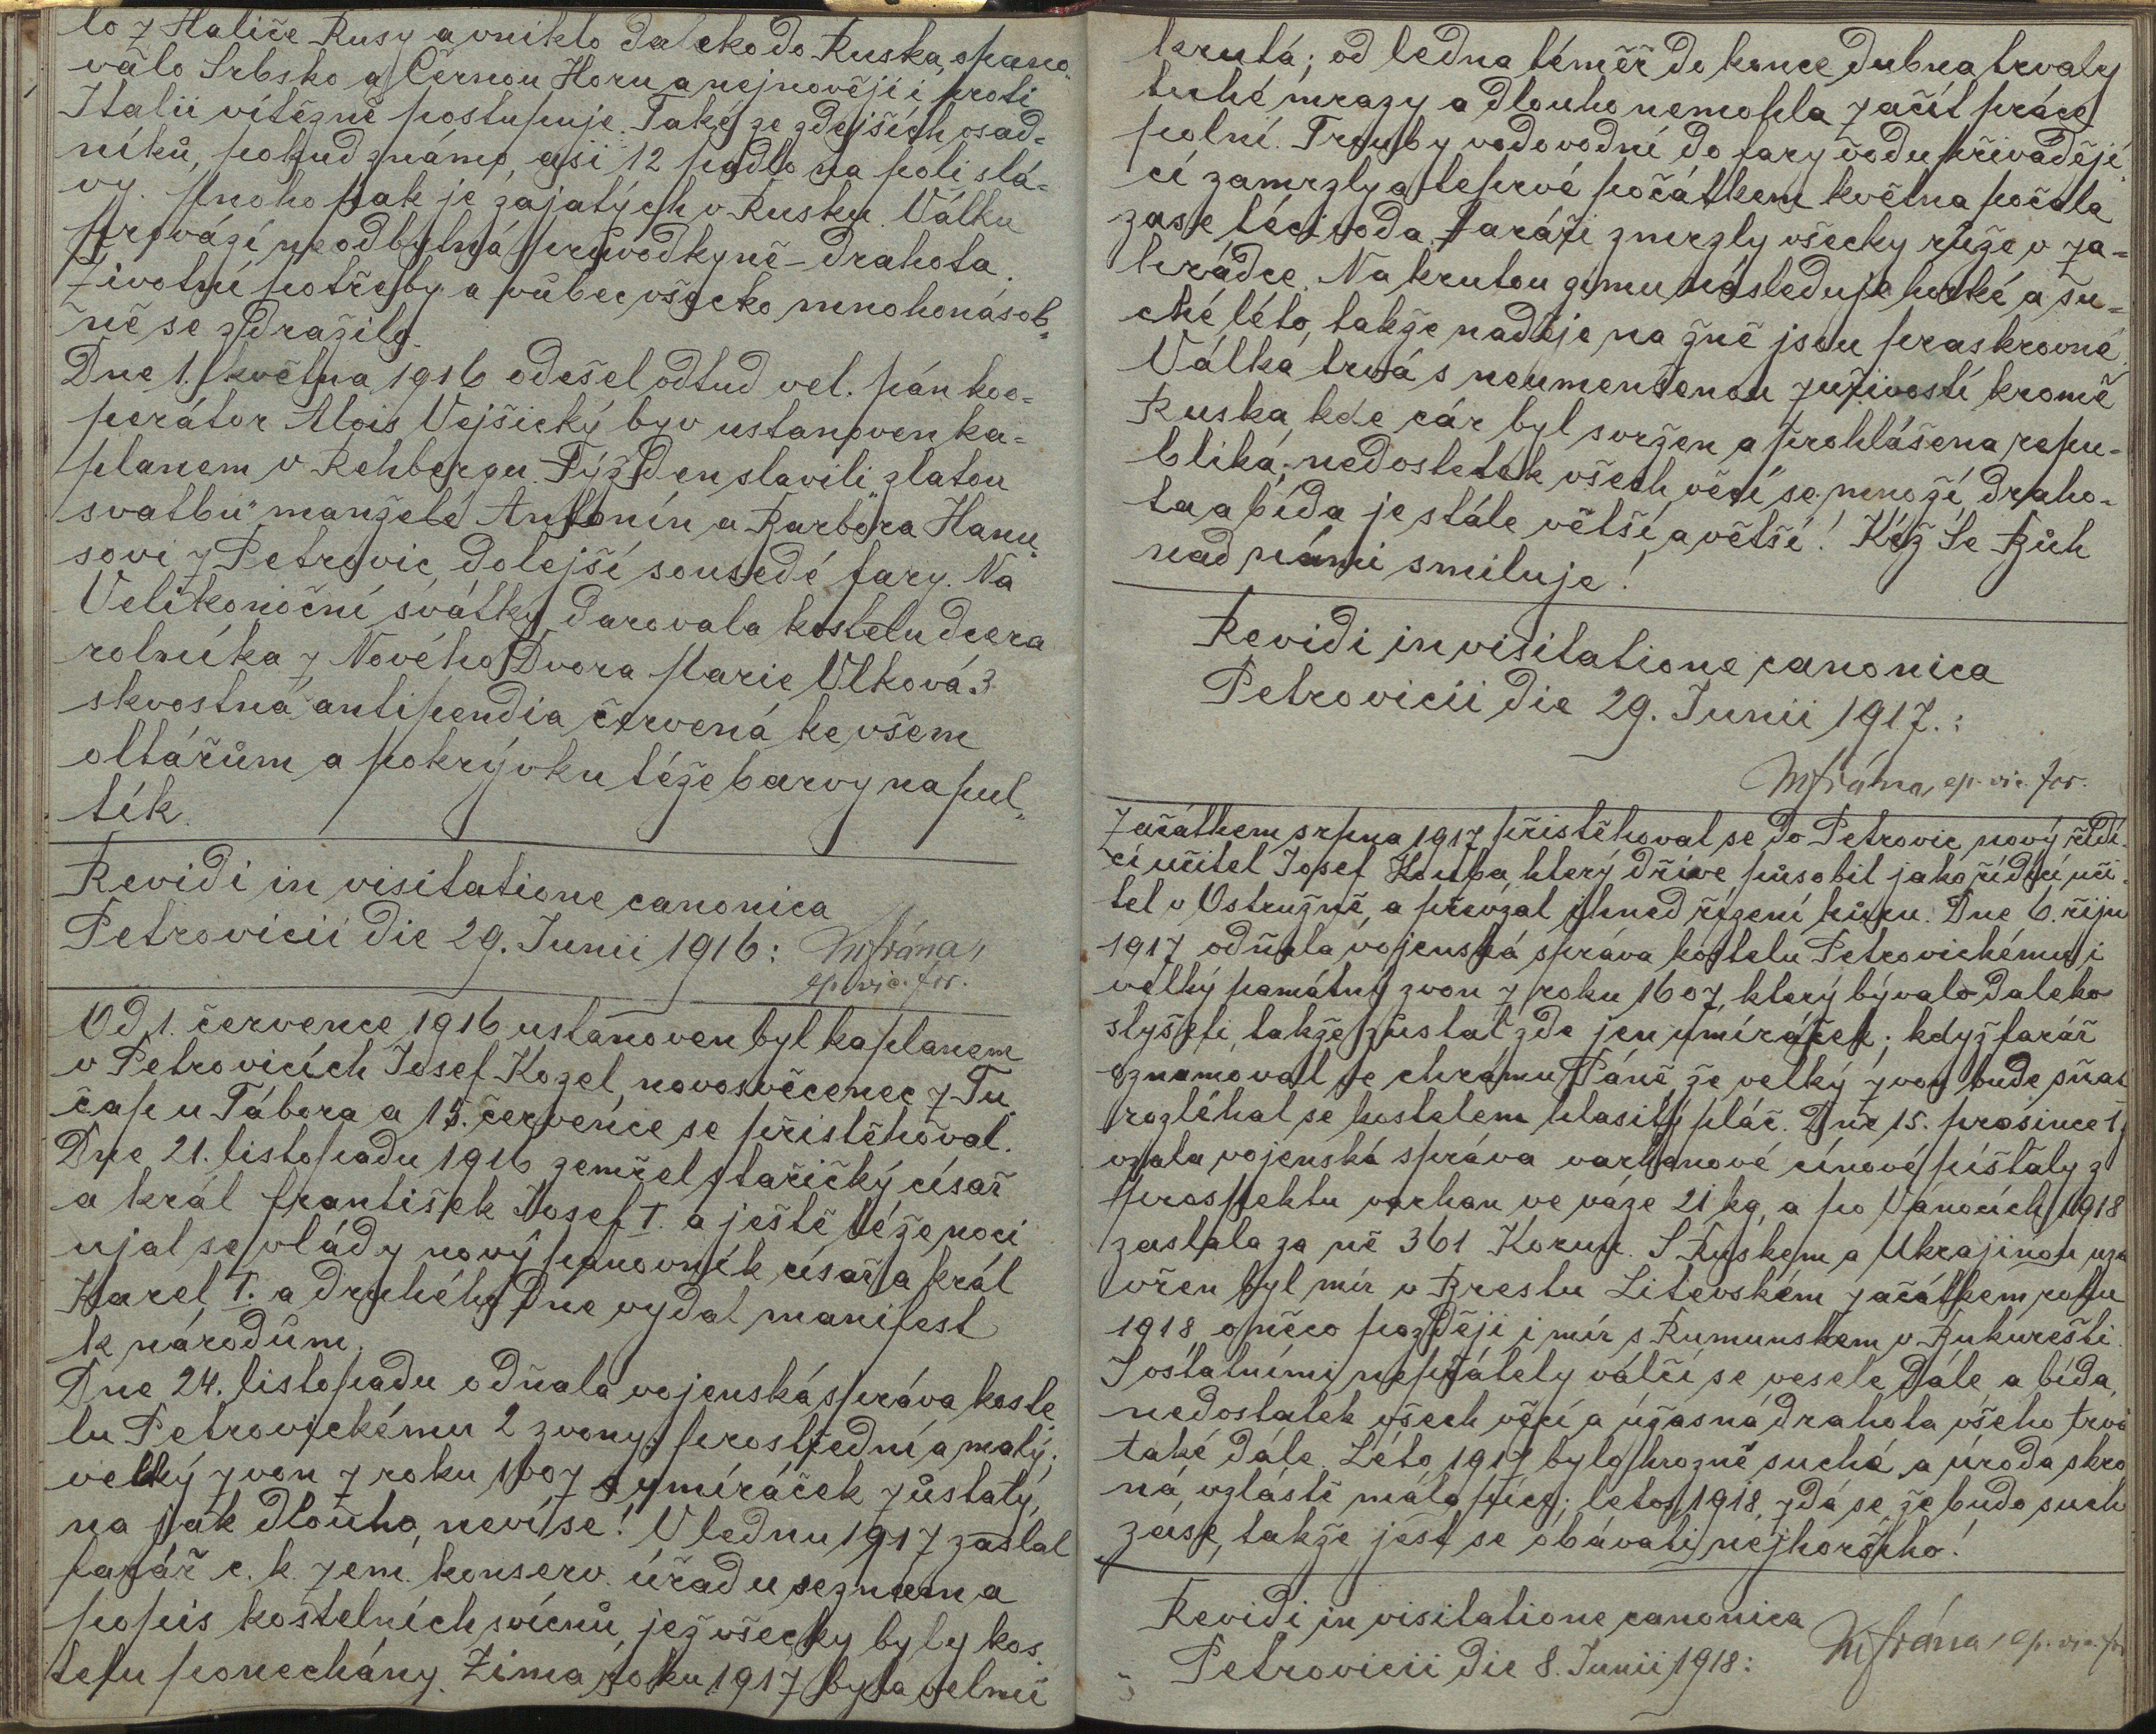 lo z Haliče Rusy a vniklo daleko do Ruska, spano-
válo Srbsko a Černou Horu a nejnověji i proti
Italii vítězně postupuje. Také ze zdejších osad-
níků, pokud známo, asi 12 padlo na poli slá-
vy. Mnoho pak je zajatých v Rusku. Válku
provází neodbytná průvodkyně – drahota.
Životní potřeby a vůbec všecko mnohonásob-
ně se zdražilo.
Dne 1. května 1916 odešel odtud vel. pán koo-
perátor Alois Vejšický byv ustanoven ka-
planem v Rehbergu. Týž den slavili „zlatou
svatbu" manželé Antonín a Barbora Hanu-
sovi z Petrovic, dolejší sousedé fary. Na
Velikonoční svátky darovala kostelu dcera
rolníka z Nového Dvora Marie Vlková 3
skvostná antipendia červená ke všem
oltářům a pokrývku téže barvy na pul-
tík.
Revidi in visitatione canonica
Petrovicii die 29. Junii 1916:
ep. vic. for.
Od 1. července 1916 ustanoven byl kaplanem
v Petrovicích Josef Kozel, novosvěcenec z Tu-
čap u Tábora a 15. července se přistěhoval.
Dne 21. listopadu 1916 zemřel stařičký císař
a král František Josef I. a ještě téže noci
ujal se vlády nový panovník císař a král
Karel I. a druhého dne vydal manifest
k národům.
Dne 24. listopadu odňala vojenská správa koste-
lu Petrovickému 2 zvony: prostřední a malý;
velký zvon z roku 1607 a umíráček zůstaly,
na jak dlouho, neví se! V lednu 1917 zaslal
farář c. k. zem. konserv. úřadu seznam a
popis kostelních svícnů, jež všecky byly kos-
telu ponechány. Zima roku 1917 byla velmi
krutá; od ledna téměř do konce dubna trvaly
tuhé mrazy a dlouho nemohla začít práce
polní. Trouby vodovodní do fary vodu přivádějí-
cí zamrzly a teprvé počátkem května počala
zase téci voda. Faráři zmrzly všecky růže v za-
hrádce. Na krutou zimu následuje horké a su-
ché léto, takže naděje na žně jsou praskrovné.
Válka trvá s neumenšenou zuřivostí kromě
Ruska, kde cár byl svržen a prohlášena repu-
blika; nedostatek všech věcí se množí, draho-
ta a bída je stále větší a větší! Kéž se Bůh
nad námi smiluje!
Revidi in visitatione canonica
Petrovicii die 29. Junii 1917.:
ep. vic. for.
Začátkem srpna 1917 přistěhoval se do Petrovic nový řídí-
cí učitel Josef Houba, který dříve působil jako řídící uči-
tel v Ostružně, a převzal ihned řízení kůru. Dne 6. říju
1917 odňala vojenská správa kostelu Petrovickému i
velký památný zvon z roku 1607, který bývalo daleko
slyšeti, takže zůstal zde jen umíráček; když farář
oznamoval ve chrámu Páně, že velký zvon bude sňat
rozléhal se kostelem hlasitý pláč. Dne 15. prosince 1
vzala vojenská správa varhanové cínové píšťaly z
prospektu varhan ve váze 21 kg, a po Vánocích 1918
zaslala za ně 361 Korun. S Ruskem a Ukrajinou uza
vřen byl mír v Brestu Litevském začátkem roku
1918 o něco později i mír s Rumunskem v Bukurešti.
S ostatními nepřátely válčí se vesele dále, a bída,
nedostatek všech věcí a úžasná drahota všeho trvá
také dále. Léto 1917 bylo hrozně suché a úroda skro
ná, vzláště málo píce; letos 1918 zdá se, že bude such
zase, takže jest se obávati nejhoršího!
Revidi in visitatione canonica
Petrovicii die 8. Junii 1918: ep. vic. fo